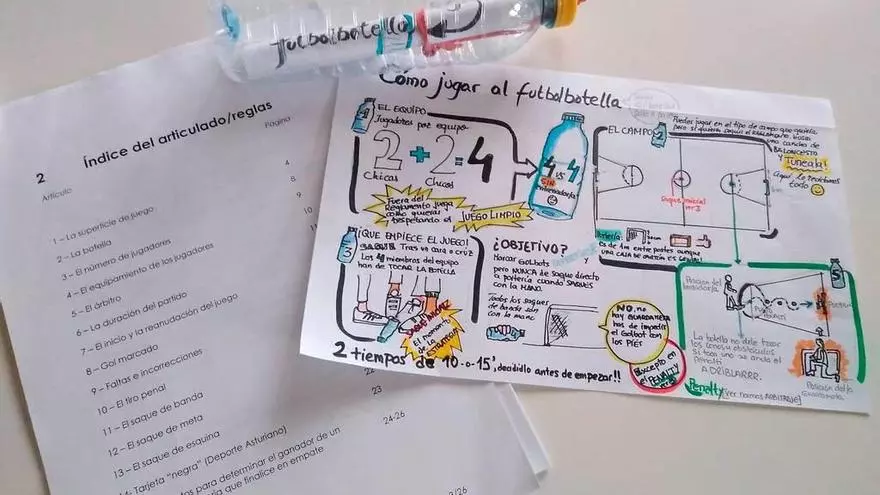 futbolbotella
2 Índice del articulado/reglas
Artículo
Página
1 – La superficie de juego
4
2 – La botella
8
3 – El número de jugadores
9
4 – El equipamiento de los jugadores
10
5 – El árbitro
6 – La duración del partido
7 – El inicio y la reanudación del juego
8 – Gol marcado
9 – Faltas e incorrecciones
10 – El tiro penal
11 – El saque de banda
12 – El saque de meta
13 – El saque de esquina
22
23
24-26
14- Tarjeta "negra" (Deporte Asturiano)
para determinar el ganador de un
que finalice en empate
Cómo jugar al futbolbotella
1
EL EQUIPO
Jugadores por equipo
2 + 2 = 4
Chicas Chicos
4 vs 4
SIN
Fuera del
Reglamento juega
como quieras
respetando el
JUEGO LIMPIO
EL CAMPO
2
Puedes jugar en el tipo de campo que quieras
cancha de
BALONCESTO
Y Tunéala!
Aquí Le
todo
Saque inicial
Portería:
es de 1m entre postes aunque
UNA CAJA DE CARTÓN ES GENIAL!
3
¡QUE EMPIECE EL JUEGO!
SAQUE Tras va cara o cruz
Los 4 miembros del equipo
han de TOCAR LA BOTELLA
SAQUE INICIAL
El momento
de La
¿OBJETIVO?
Marcar Golbots
pero NUNCA de saque directo
a portería cuando SAQUES
CON LA MANO.
Todos los saques
de banda son
con la mano
NO, no
hay GUARDAMETA
has de impedir
el Golbot con
los PIES
Excepto en
el PENALTY
5
Posición del
La botella no debe tocar
los conos u obstáculos
si toca uno se anula el
penalti
A DRIBLARRR.
Posición del/a
Guardameta
Penalty [Ver normas ARBITRAJE]
2 tiempos de 10'-o-15', decididlo antes de empezar!!